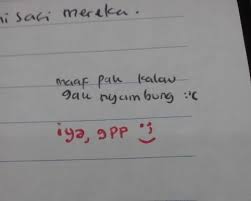 ni saci mereka.
maaf pak kalau
gau nyambung :'(
iya, gpp :)